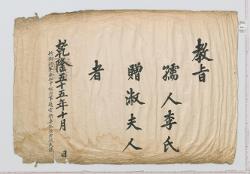 教旨
孺人李氏
贈淑夫人
者
乾隆五十五年十月 日